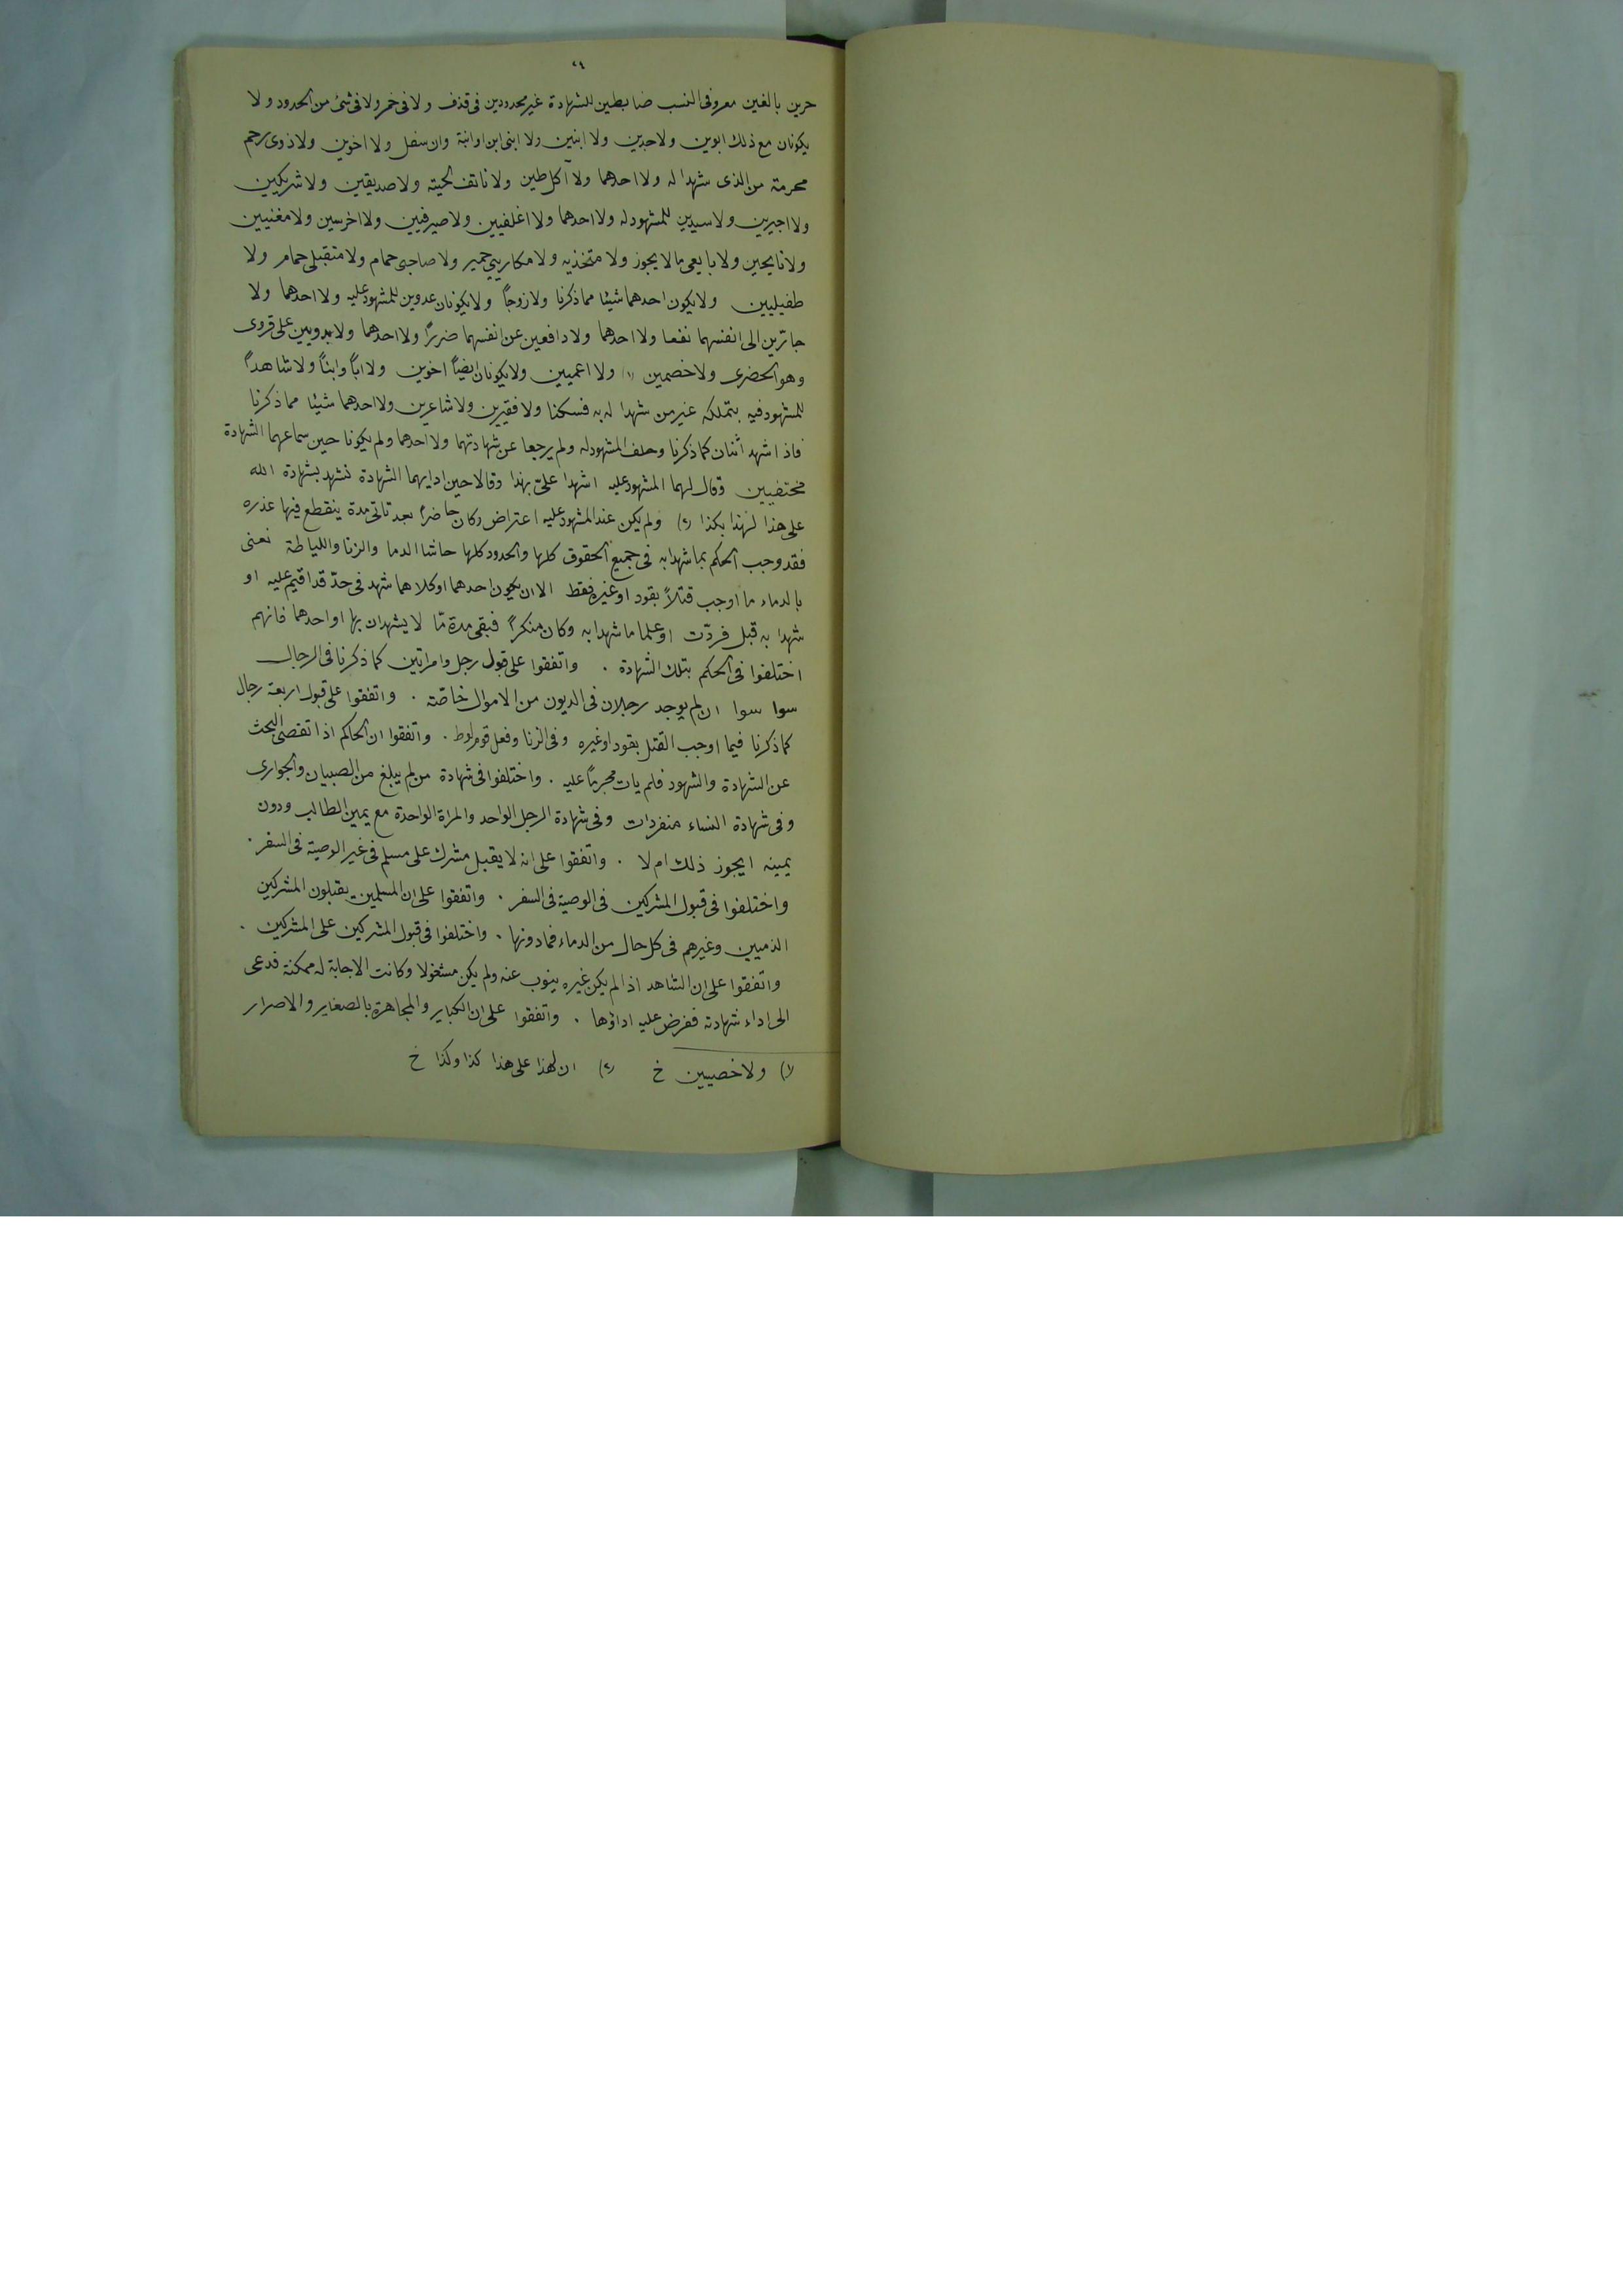 ٢٩
حرين بالغين معروفى النسب ضابطين للشهادة غير محدودين فى قذف ولا فى خمر ولا فى شئ من الحدود ولا
يكونان مع ذلك ابوين ولا جدين ولا ابنين ولا ابنى ابن او ابنة وان سفل ولا اخوين ولا ذوى رحم
محرمة من الذى شهدا له ولا احدهما ولا آكل طين ولا ناتف لحيته ولا صديقين ولا شريكين
ولا اجيرين ولا سيدين للمشهود له ولا احدهما ولا اغلفيين ولا صيرفيين ولا اخرسين ولا مغنيين
ولا نايحين ولا بايعى ما لا يجوز ولا متخذيه ولا مكاريي حمير ولا صاحبى حمام ولا متقبلى حمام ولا
طفيليين ولا يكون احدهما شيئا مما ذكرنا ولا زوجاً ولا يكونان عدوين للمشهود عليه ولا احدهما ولا
جاترين الى انفسهما نفعا ولا احدهما ولا دافعين عن انفسهما ضررًا ولا احدهما ولا بدويين على قروى
وهو الحضرى ولا خصمين (١) ولا اعميين ولا يكونان ايضاً اخوين ولا اباً وابناً ولا شاهداً
للمشهود فيه بتملكه غير من شهدا له به فسكتا ولا فقيرين ولا شاعرين ولا احدهما شيئا مما ذكرنا
فاذا شهد اثنان كما ذكرنا وحلف المشهود له ولم يرجعا عن شهادتهما ولا احدهما ولم يكونا حين سماعهما الشهادة
مختفيين وقال لهما المشهود عليه اشهدا علىّ بهذا وقالا حين ادايهما الشهادة نشهد بشهادة الله
على هذا لهذا بكذا (٢) ولم يكن عند المشهود عليه اعتراض وكان حاضراً بعد تاتى مدة ينقطع فيها عذره
فقد وجب الحكم بما شهدا به فى جميع الحقوق كلها والحدود كلها حاشا الدما والزنا واللياطة نعنى
بالدماء ما اوجب قتلاً بقود او غيره فقط الا ان يكون احدهما او كلاهما شهد فى حدّ قد اقيم عليه او
شهدا به قبل فردّت او علما ما شهدا به وكان منكراً فبقى مدة مّا لا يشهدان بها او احدهما فانهم
اختلفوا فى الحكم بتلك الشهادة . واتفقوا على قبول رجل وامراتين كما ذكرنا فى الرجال
سوا سوا ان لم يوجد رجلان فى الديون من الاموال خاصّة . واتفقوا على قبول اربعة رجال
كما ذكرنا فيما اوجب القتل بقود او غيره وفى الزنا وفعل قوم لوط . واتفقوا ان الحاكم اذا تقصى البحث
عن الشهادة والشهود فلم يات محرماً عليه . واختلفوا فى شهادة من لم يبلغ من الصبيان والجوارى
وفى شهادة النساء منفردات وفى شهادة الرجل الواحد والمراة الواحدة مع يمين الطالب ودون
يمينه ايجوز ذلك ام لا . واتفقوا على انه لا يقبل مشرك على مسلم فى غير الوصية فى السفر .
واختلفوا فى قبول المشركين فى الوصية فى السفر . واتفقوا على ان المسلمين يقبلون المشركين
الذميين وغيرهم فى كل حال من الدماء فمادونها . واختلفوا فى قبول المشركين على المشركين .
واتفقوا على ان الشاهد اذا لم يكن غيره ينوب عنه ولم يكن مشغولا وكانت الاجابة له ممكنة فدعى
الى اداء شهادته ففرض عليه اداؤها . واتفقوا على ان الكباير والمجاهرة بالصغاير والاصرار
(١) ولا خصيين خ (٢) ان لهذا على هذا كذا وكذا خ